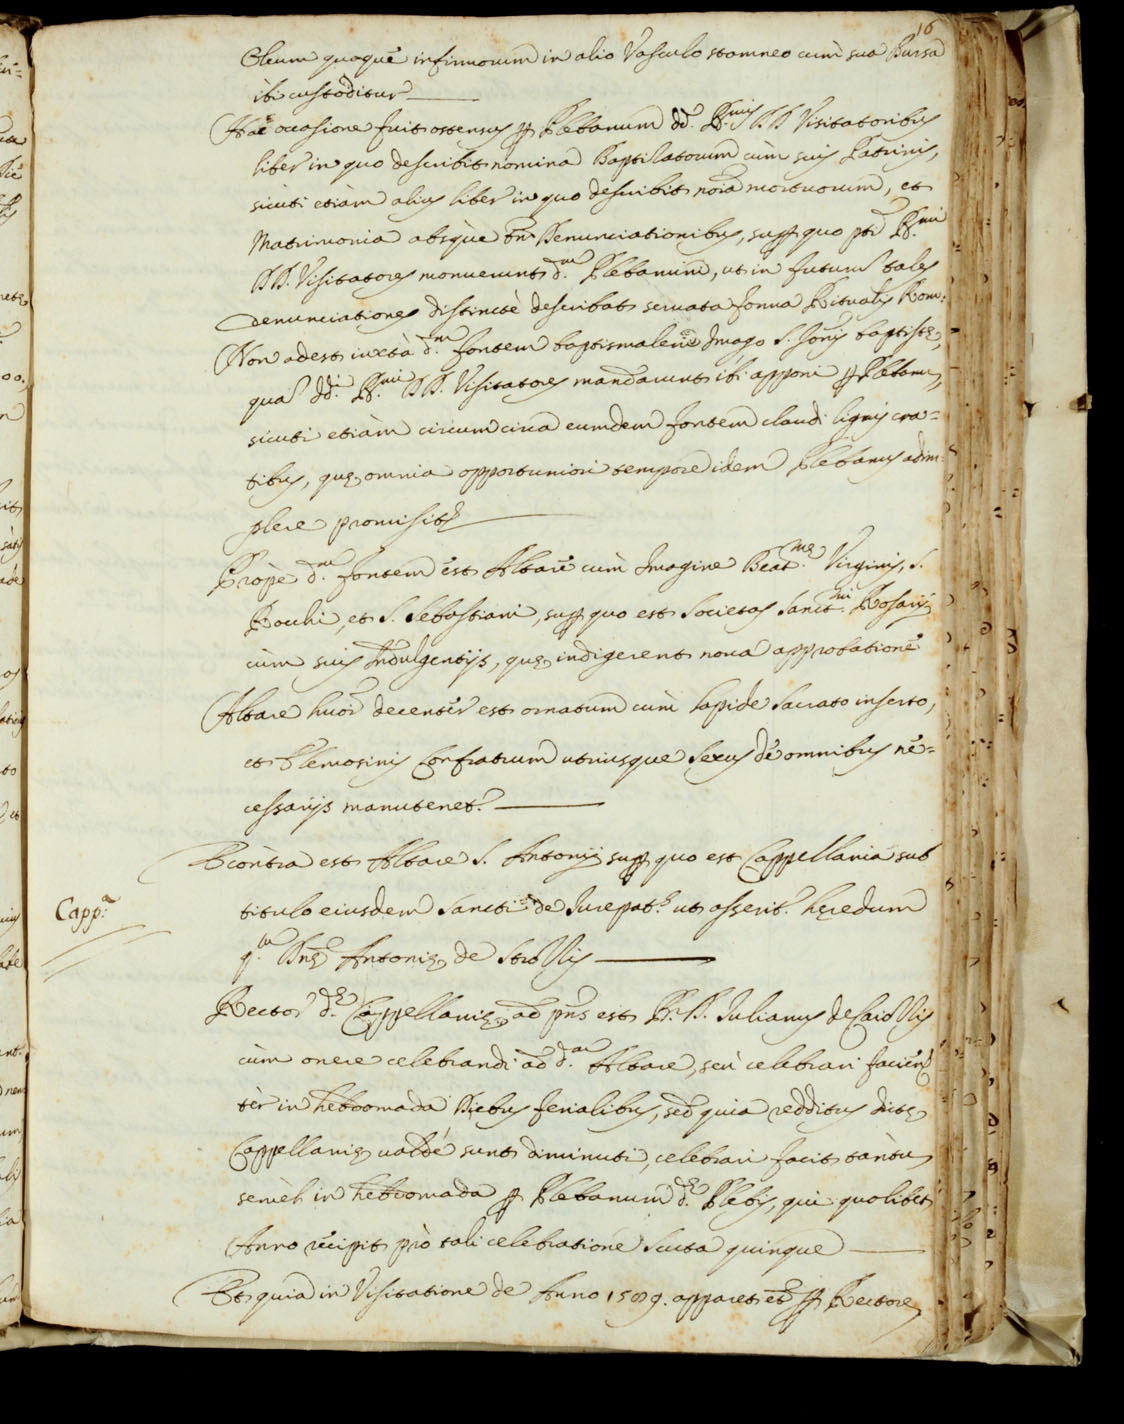 16
Oleum quoque infirmorum in alio Vasculo stamneo cum sua Bursa
ibi custoditur
Hac occasione fuit ostensus per Plebanum dd. R.mis DD. Visitatoribus
liber in quo describit nomina Baptizatorum cum suis Patrinis,
sicuti etiam alius liber in quo describit noia mortuorum, et
Matrimonia absque tn. Denunciationibus, super quo pti R.mi
DD. Visitatores monuerunt d.um Plebanum, ut in futurum tales
denunciationes distincte describat servata forma Ritualis Rom.
Non adest iuxta d.m fontem baptismalem Imago S. Jois baptistę,
qua dd.i R.mi DD. Visitatores mandarunt ibi apponi per Plebanum,
sicuti etiam circumcirca eumdem fontem claudi lignis cra=
tibus, quę omnia opportuniori tempore idem Plebanus adim=
plere promisit
Prope d.m fontem est Altare cum Imagine Beat.mę Virginis, S.
Rochi, et S. Sebastiani, super quo est Societas Sanct.mi Rosarij
cum suis Indulgentijs, quę indigerent nova approbatione
Altare huor decenter est ornatum cum lapide sacrato inserto,
et Elemosinis Confratrum utriusque sexus de omnibus ne=
cessarijs manutenet.r
Econtra est Altare S. Antonij super quo est Cappellania sub
Capp.a
titulo eiusdem Sancti de Jurepat. ut asserit. hęredum
q.m Dnę Antonię de
Rector d.ę Cappellanię ad pns est R. D. Julianus de
cum onere celebrandi ad d.um Altare, seu celebrari faciend
ter in hebdomada diebus ferialibus, sed quia redditus dictę
Cappellanię valde sunt diminuti, celebrari facit tantum
semel in hebdomada per Plebanum d.ę Plebis, qui quolibet
Anno recipit pro tali celebratione scuta quinque
Et quia in Visitatione de Anno 1589. apparet per Rectorę